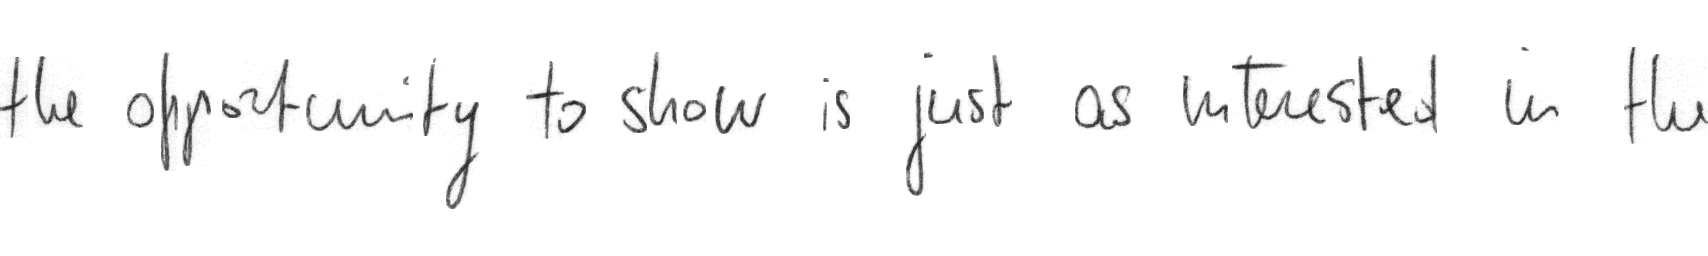 the opportunity to show is just as interested in the